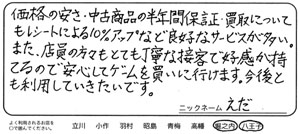 価格の安さ・中古商品の半年間保証・買取について
もレシートによる10%アップなど良好なサービスが多い。
また、店員の方々もとても丁寧な接客で好感が持
てるので安心してゲームを買いに行けます。今後と
も利用していきたいです。
ニックネーム えだ
よく利用されるお店を
○で囲んでください。 立川 小作 羽村 昭島 青梅 高幡 堀之内 八王子